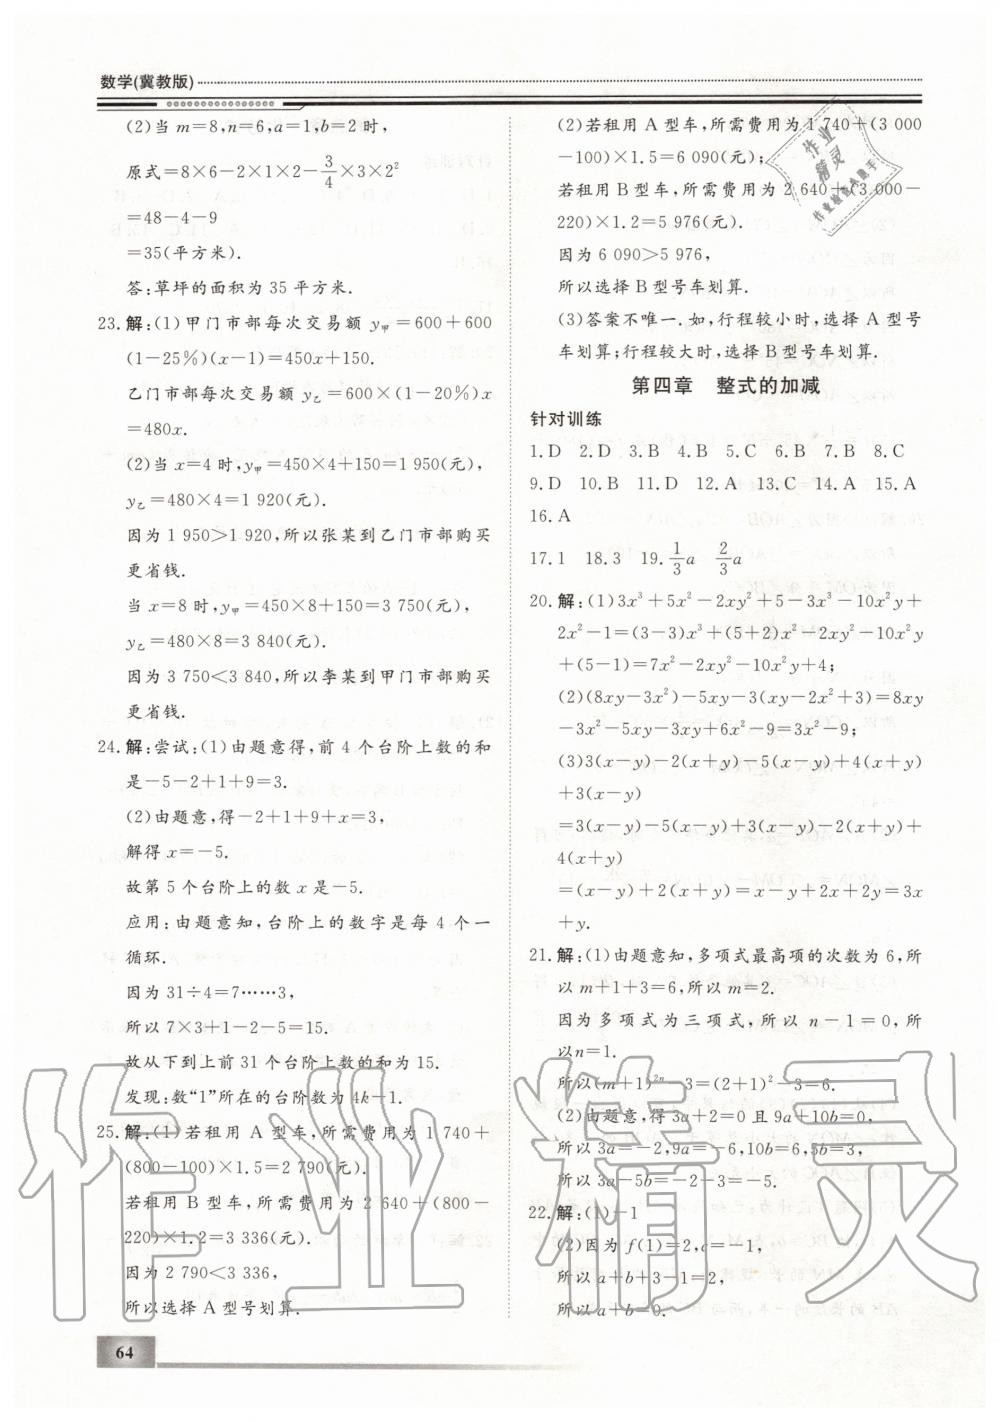 数学(冀教版)
(2)当 m=8,n=6,a=1,b=2 时,
原式=8×6-2×1×2-3/4×3×2²
=48-4-9
=35(平方米).
答:草坪的面积为 35 平方米.
23.解:(1)甲门市部每次交易额 y甲=600+600
(1-25%)(x-1)=450x+150.
乙门市部每次交易额 y乙=600×(1-20%)x
=480x.
(2)当 x=4 时,y甲=450×4+150=1 950(元),
y乙=480×4=1 920(元).
因为 1 950>1 920,所以张某到乙门市部购买
更省钱.
当 x=8 时,y甲=450×8+150=3 750(元),
y乙=480×8=3 840(元).
因为 3 750<3 840,所以李某到甲门市部购买
更省钱.
24.解:尝试:(1)由题意得,前 4 个台阶上数的和
是-5-2+1+9=3.
(2)由题意,得-2+1+9+x=3,
解得 x=-5.
故第 5 个台阶上的数 x 是-5.
应用:由题意知,台阶上的数字是每 4 个一
循环.
因为 31÷4=7……3,
所以 7×3+1-2-5=15.
故从下到上前 31 个台阶上数的和为 15.
发现:数“1”所在的台阶数为 4k-1.
25.解:(1)若租用 A 型车,所需费用为 1 740+
(800-100)×1.5=2 790(元).
若租用 B 型车,所需费用为 2 640+(800-
220)×1.2=3 336(元).
因为 2 790<3 336,
所以选择 A 型号车划算.
(2)若租用 A 型车,所需费用为 1 740+(3 000
-100)×1.5=6 090(元);
若租用 B 型车,所需费用为 2 640+(3 000-
220)×1.2=5 976(元).
因为 6 090>5 976,
所以选择 B 型号车划算.
(3)答案不唯一.如,行程较小时,选择 A 型号
车划算;行程较大时,选择 B 型号车划算.
第四章 整式的加减
针对训练
1.D 2.D 3.B 4.B 5.C 6.B 7.B 8.C
9.D 10.B 11.D 12.A 13.C 14.A 15.A
16.A
17.1 18.3 19.1/3a 2/3a
20.解:(1)3x³+5x²-2xy²+5-3x³-10x²y+
2x²-1=(3-3)x³+(5+2)x²-2xy²-10x²y
+(5-1)=7x²-2xy²-10x²y+4;
(2)(8xy-3x²)-5xy-3(xy-2x²+3)=8xy
-3x²-5xy-3xy+6x²-9=3x²-9;
(3)3(x-y)-2(x+y)-5(x-y)+4(x+y)
+3(x-y)
=3(x-y)-5(x-y)+3(x-y)-2(x+y)+
4(x+y)
=(x-y)+2(x+y)=x-y+2x+2y=3x
+y.
21.解:(1)由题意知,多项式最高项的次数为 6,所
以 m+1+3=6,所以 m=2.
因为多项式为三项式,所以 n-1=0,所
以n=1.
所以(m+1)²ⁿ-3=(2+1)²-3=6.
(2)由题意,得 3a+2=0 且 9a+10b=0,
所以 3a=-2,9a=-6,10b=6,5b=3,
所以 3a-5b=-2-3=-5.
22.解:(1)-1
(2)因为 f(1)=2,c=-1,
所以 a+b+3-1=2,
所以 a+b=0.
64
作业精灵
作业精灵